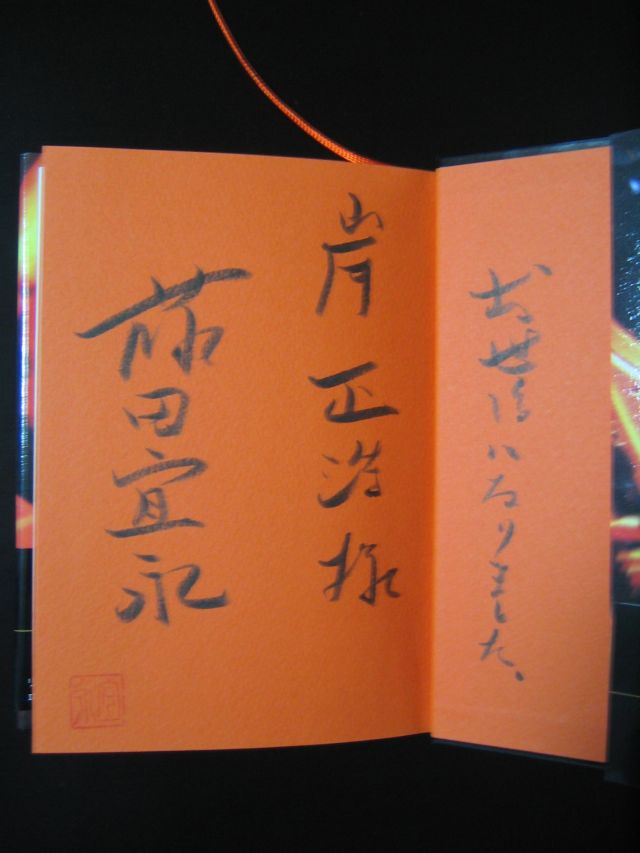 お世話になりました、
岸正浩様
藤田宜永
宜永